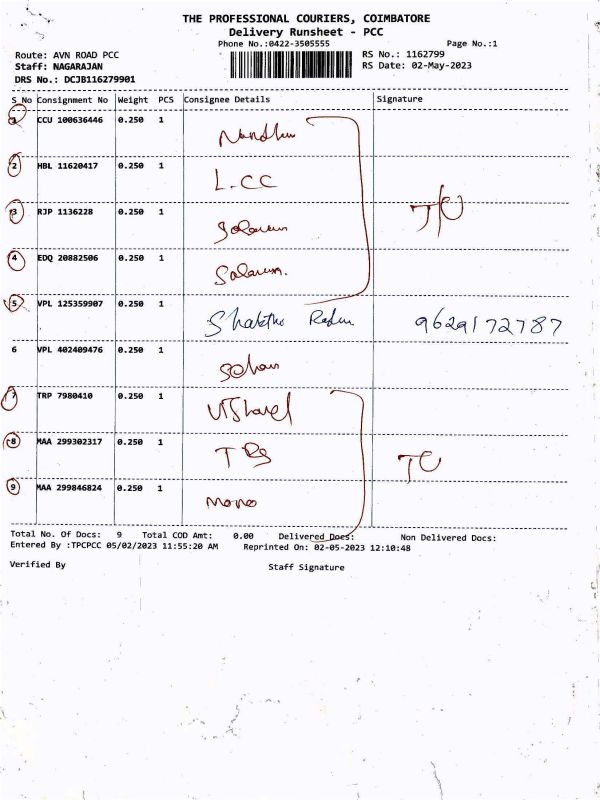 THE PROFESSIONAL COURIERS, COIMBATORE
Delivery Runsheet - PCC
Phone No.:0422-3505555 Page No.:1
Route: AVN ROAD PCC RS No.: 1162799
Staff: NAGARAJAN RS Date: 02-May-2023
DRS No.: DCJB116279901
S No Consignment No Weight PCS Consignee Details Signature
1 CCU 100636446 0.250 1
2 HBL 11620417 0.250 1 L.CC
3 RJP 1136228 0.250 1
4 EDQ 20882506 0.250 1
5 VPL 125359907 0.250 1 9629172787
6 VPL 402409476 0.250 1
7 TRP 7980410 0.250 1
8 MAA 299302317 0.250 1
9 MAA 299846824 0.250 1 mono
Total No. Of Docs: 9 Total COD Amt: 0.00 Delivered Docs: Non Delivered Docs:
Entered By :TPCPCC 05/02/2023 11:55:20 AM Reprinted On: 02-05-2023 12:10:48
Verified By Staff Signature